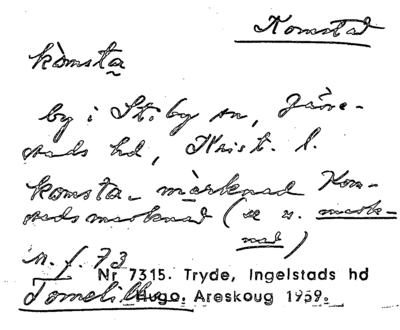 Komstad
kòmsta̰
by i St. by sn, Järre-
stads hd, Krist. l.
komsta- märknad Kom-
stads marknad (se u. mark-
nad)
s. f. 73
Nr 7315. Tryde, Ingelstads hd
Tomelilla Hugo Areskoug 1959.